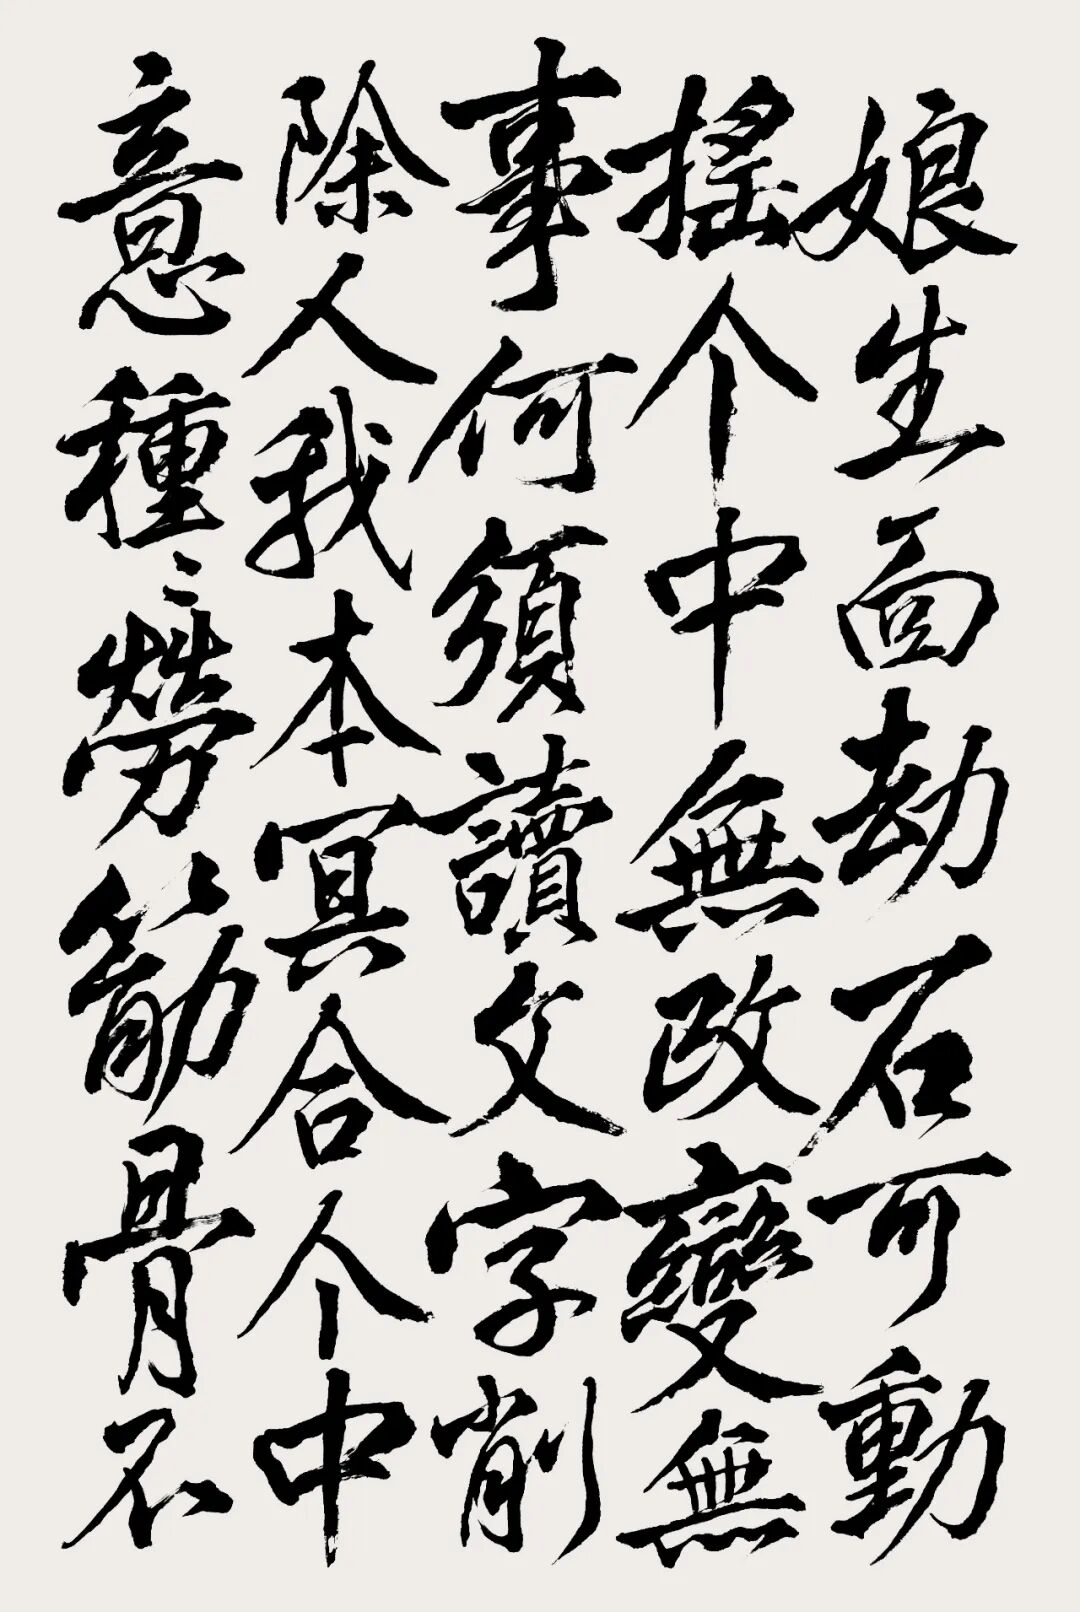 娘生面劫石可動
搖个中無改變無
事何須讀文字削
除人我本冥合个中
意種〻勞筋骨不